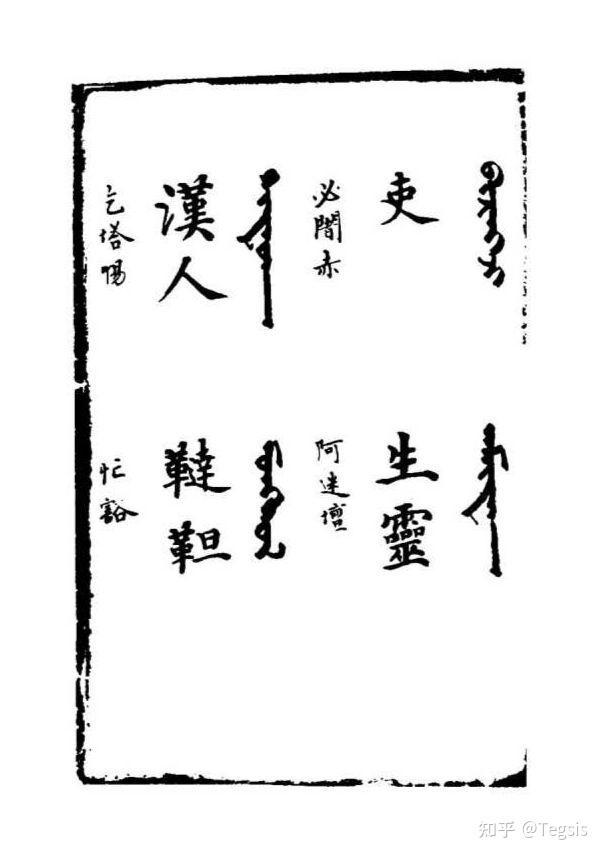 吏
必闍赤
ᠠᠮᠢᠲᠠᠨ
生靈
阿迷壇
ᠬᠢᠲᠠᠳ
漢人
乞塔惕
ᠮᠣᠩᠭᠣᠯ
韃靼
忙豁
知乎 @Tegsis